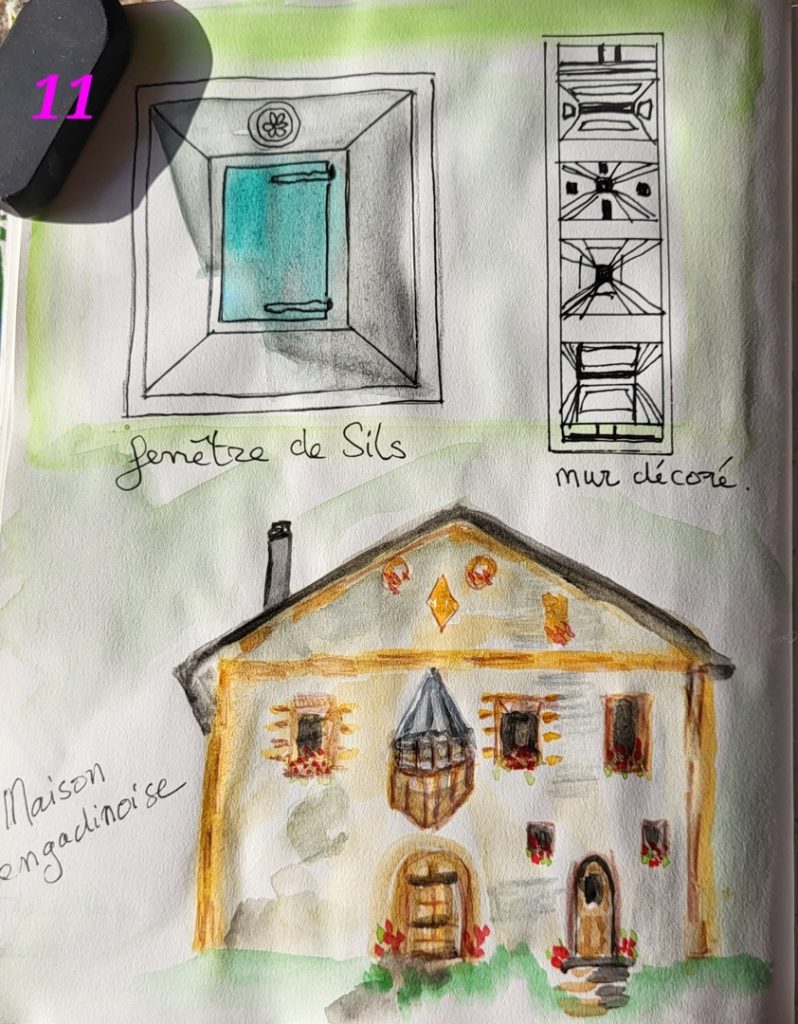 11
fenêtre de Sils
mur décoré.
Maison
engadinoise